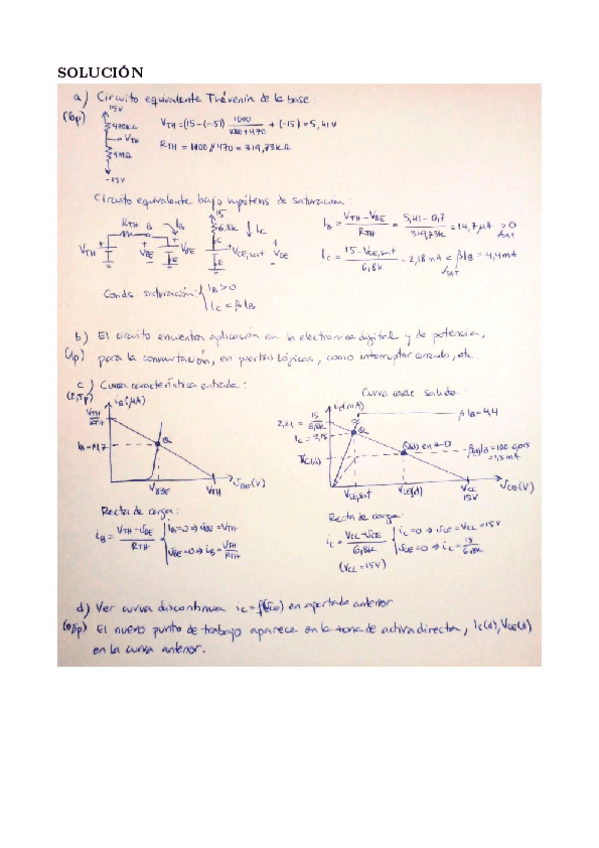 SOLUCIÓN
a) Circuito equivalente Thévenin de la base:
(6p)
15V
470KΩ
VTH
1MΩ
-15V
VTH = (15-(-15)) 1000 / 1000+470 + (-15) = 5,41V
RTH = 1000 || 470 = 319,73KΩ
Circuito equivalente bajo hipótesis de saturación:
RTH B IB
VTH VBE VBE
E E
15
6,8K IC
C
VCE,sat VCE
IB = VTH-VBE / RTH = 5,41-0,7 / 319,73K = 14,7μA > 0
SAT
IC = 15-VCE,sat / 6,8K = 2,18mA < βIB = 4,4mA
SAT
Conds. saturación: IB>0
IC<βIB
b) El circuito encuentra aplicación en la electrónica digital y de potencia,
(1p) para la conmutación, en puertas lógicas, como interruptor cerrado, etc.
c) Curva característica entrada:
(2,5p)
iB(μA)
VTH
RTH
IB=14,7
Q
VBE
VTH
VBE(V)
Curva caract. salida:
iC(mA)
2,21 = 15 / 6,8K
IC = 2,18
Q
βIB=4,4
IC(d)
Q(d) en A-D
= 1,5mA
VCE,sat
VCE(d)
VCC
15V
VCE(V)
Recta de carga:
iB = VTH-VBE / RTH
IB=0 ⇒ VBE=VTH
VBE=0 ⇒ iB= VTH / RTH
Recta de carga:
iC = VCC-VCE / 6,8K
(VCC=15V)
iC=0 ⇒ VCE=VCC=15V
VCE=0 ⇒ iC= 15 / 6,8K
d) Ver curva discontinua iC=f(VCE) en apartado anterior
(0,5p) El nuevo punto de trabajo aparece en la zona de activa directa, IC(d),VCE(d)
en la curva anterior.